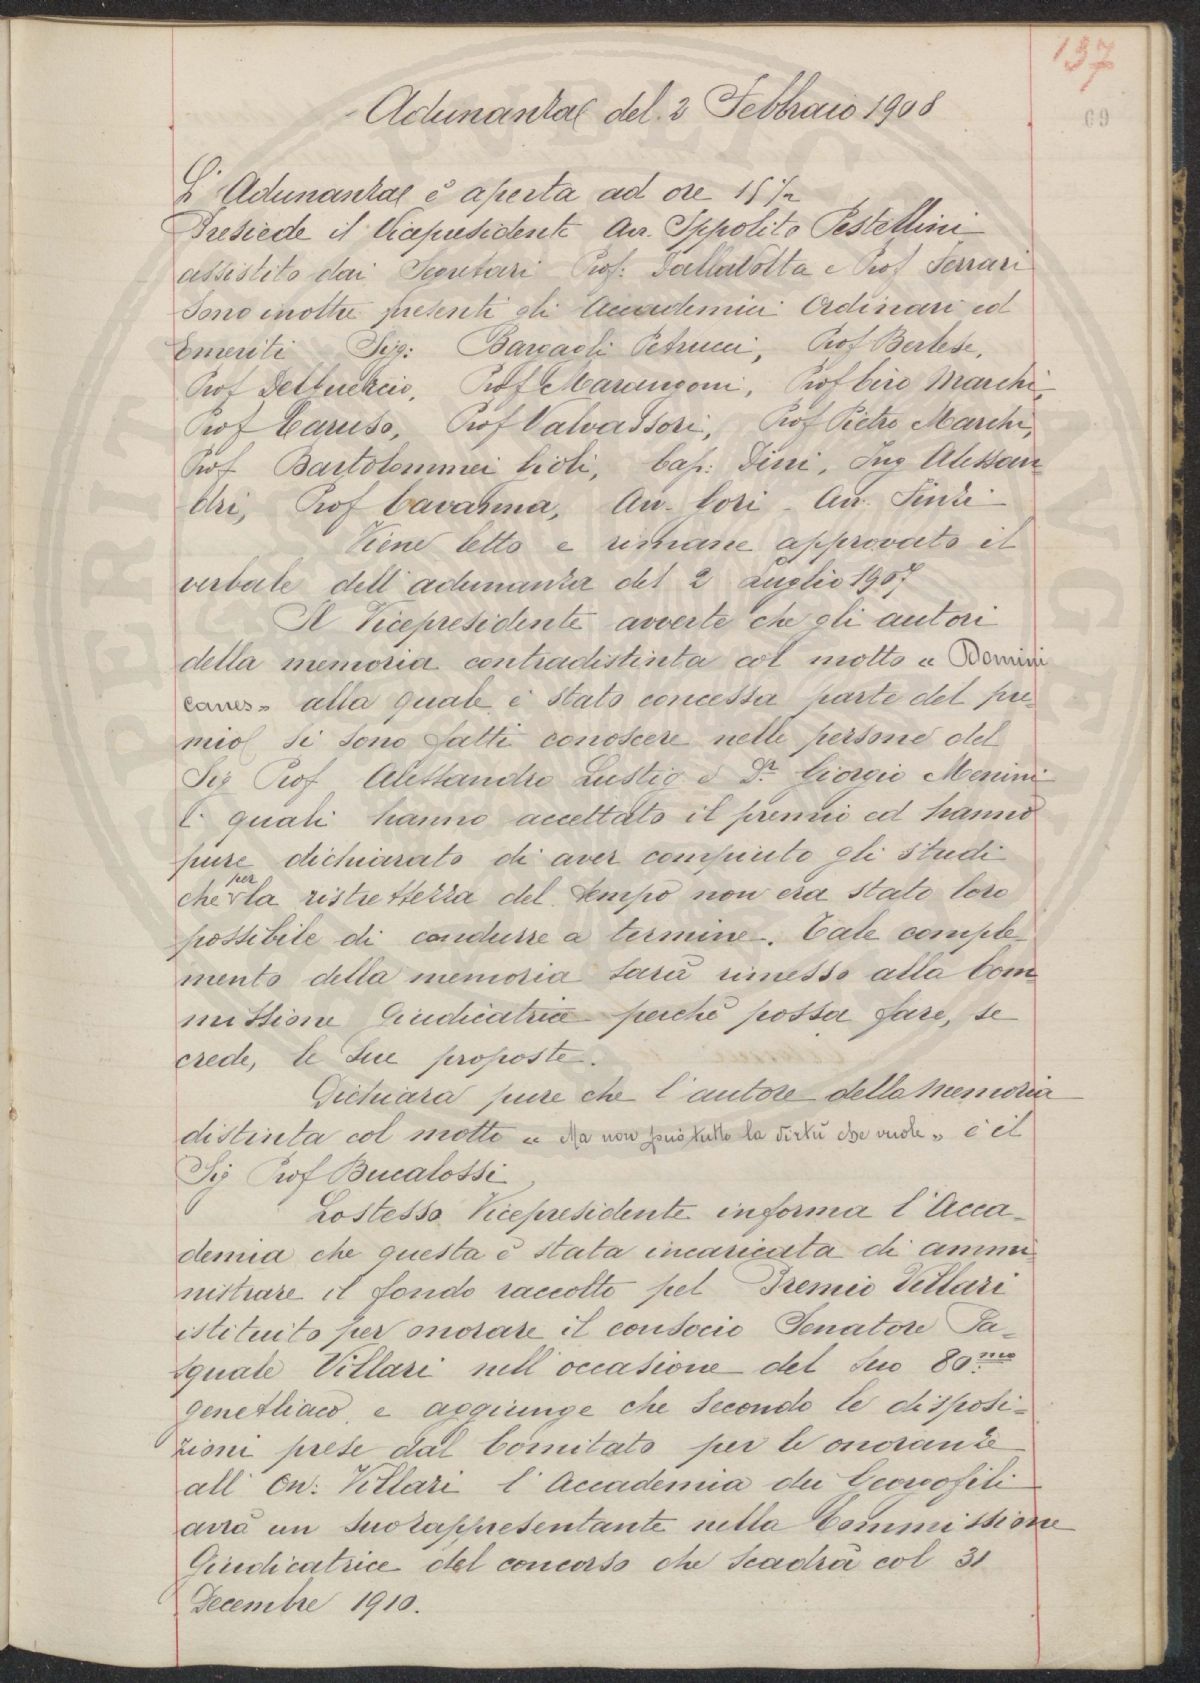 137
69
Adunanza del 2 Febbraio 1908
L'Adunanza è aperta ad ore 15 1/2
Presiede il Vicepresidente Avv. Ippolito Pestellini
assistito dai Segretari Prof: Passalotta e Prof Ferrari
Sono inoltre presenti gli Accademici Ordinari ed
Emeriti Sigg: Bargagli Petrucci, Prof Berlese,
Prof Delguercio, Prof Marangoni, Prof Ciro Marchi,
Prof Caruso, Prof Valvassori, Prof Pietro Marchi,
Prof Bartolommei Gioli, Cap: Dini, Ing Alessan-
dri, Prof Cavanna, Avv. Gori - Avv. Finzi
Viene letto e rimane approvato il
verbale dell'adunanza del 2 Luglio 1907
Il Vicepresidente avverte che gli autori
della memoria contradistinta col motto « Domini
canes » alla quale è stato concessa parte del pre-
mio si sono fatti conoscere nelle persone del
Sig Prof Alessandro Lustig e Dr. Giorgio Menini
i quali hanno accettato il premio ed hanno
pure dichiarato di aver compiuto gli studi
che per la ristrettezza del tempo non era stato loro
possibile di condurre a termine. Tale comple-
mento della memoria sarà rimesso alla Com
missione Giudicatrice perchè possa fare, se
crede, le sue proposte.
Dichiara pure che l'autore della memoria
distinta col motto « Ma non può tutto la virtù che vuole » è il
Sig Prof Bucalossi
Lo stesso Vicepresidente informa l'Acca-
demia che questa è stata incaricata di ammi
nistrare il fondo raccolto pel Premio Villari
istituito per onorare il consocio Senatore Pa-
squale Villari nell'occasione del suo 80.mo
genetliaco e aggiunge che secondo le disposi-
zioni prese dal Comitato per le onoranze
all'On: Villari l'Accademia dei Georgofili
avrà un suo rappresentante nella Commissione
Giudicatrice del concorso che scadrà col 31
Decembre 1910.